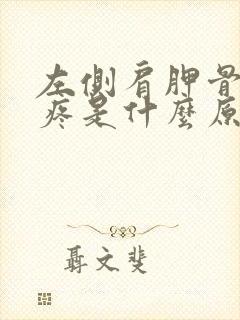 左側肩胛骨
疼是什麼原
聶文斐